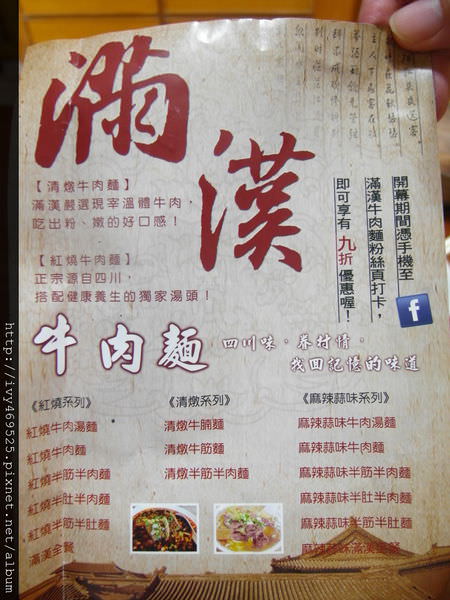 滿漢
【清燉牛肉麵】
滿漢嚴選現宰溫體牛肉,
吃出粉、嫩的好口感!
【紅燒牛肉麵】
正宗源自四川,
搭配健康養生的獨家湯頭!
開幕期間憑手機至
滿漢牛肉麵粉絲頁打卡,
即可享有 九折 優惠喔!
f
牛肉麵
四川味‧眷村情,
找回記憶的味道
《紅燒系列》
紅燒牛肉湯麵
紅燒牛肉麵
紅燒半筋半肉麵
紅燒半肚半肉麵
紅燒半筋半肚麵
滿漢全餐
《清燉系列》
清燉牛腩麵
清燉牛筋麵
清燉半筋半肉麵
《麻辣蒜味系列》
麻辣蒜味牛肉湯麵
麻辣蒜味牛肉麵
麻辣蒜味半筋半肉麵
麻辣蒜味半肚半肉麵
麻辣蒜味半筋半肚麵
麻辣蒜味滿漢全餐
http://ivy469525.pixnet.net/album